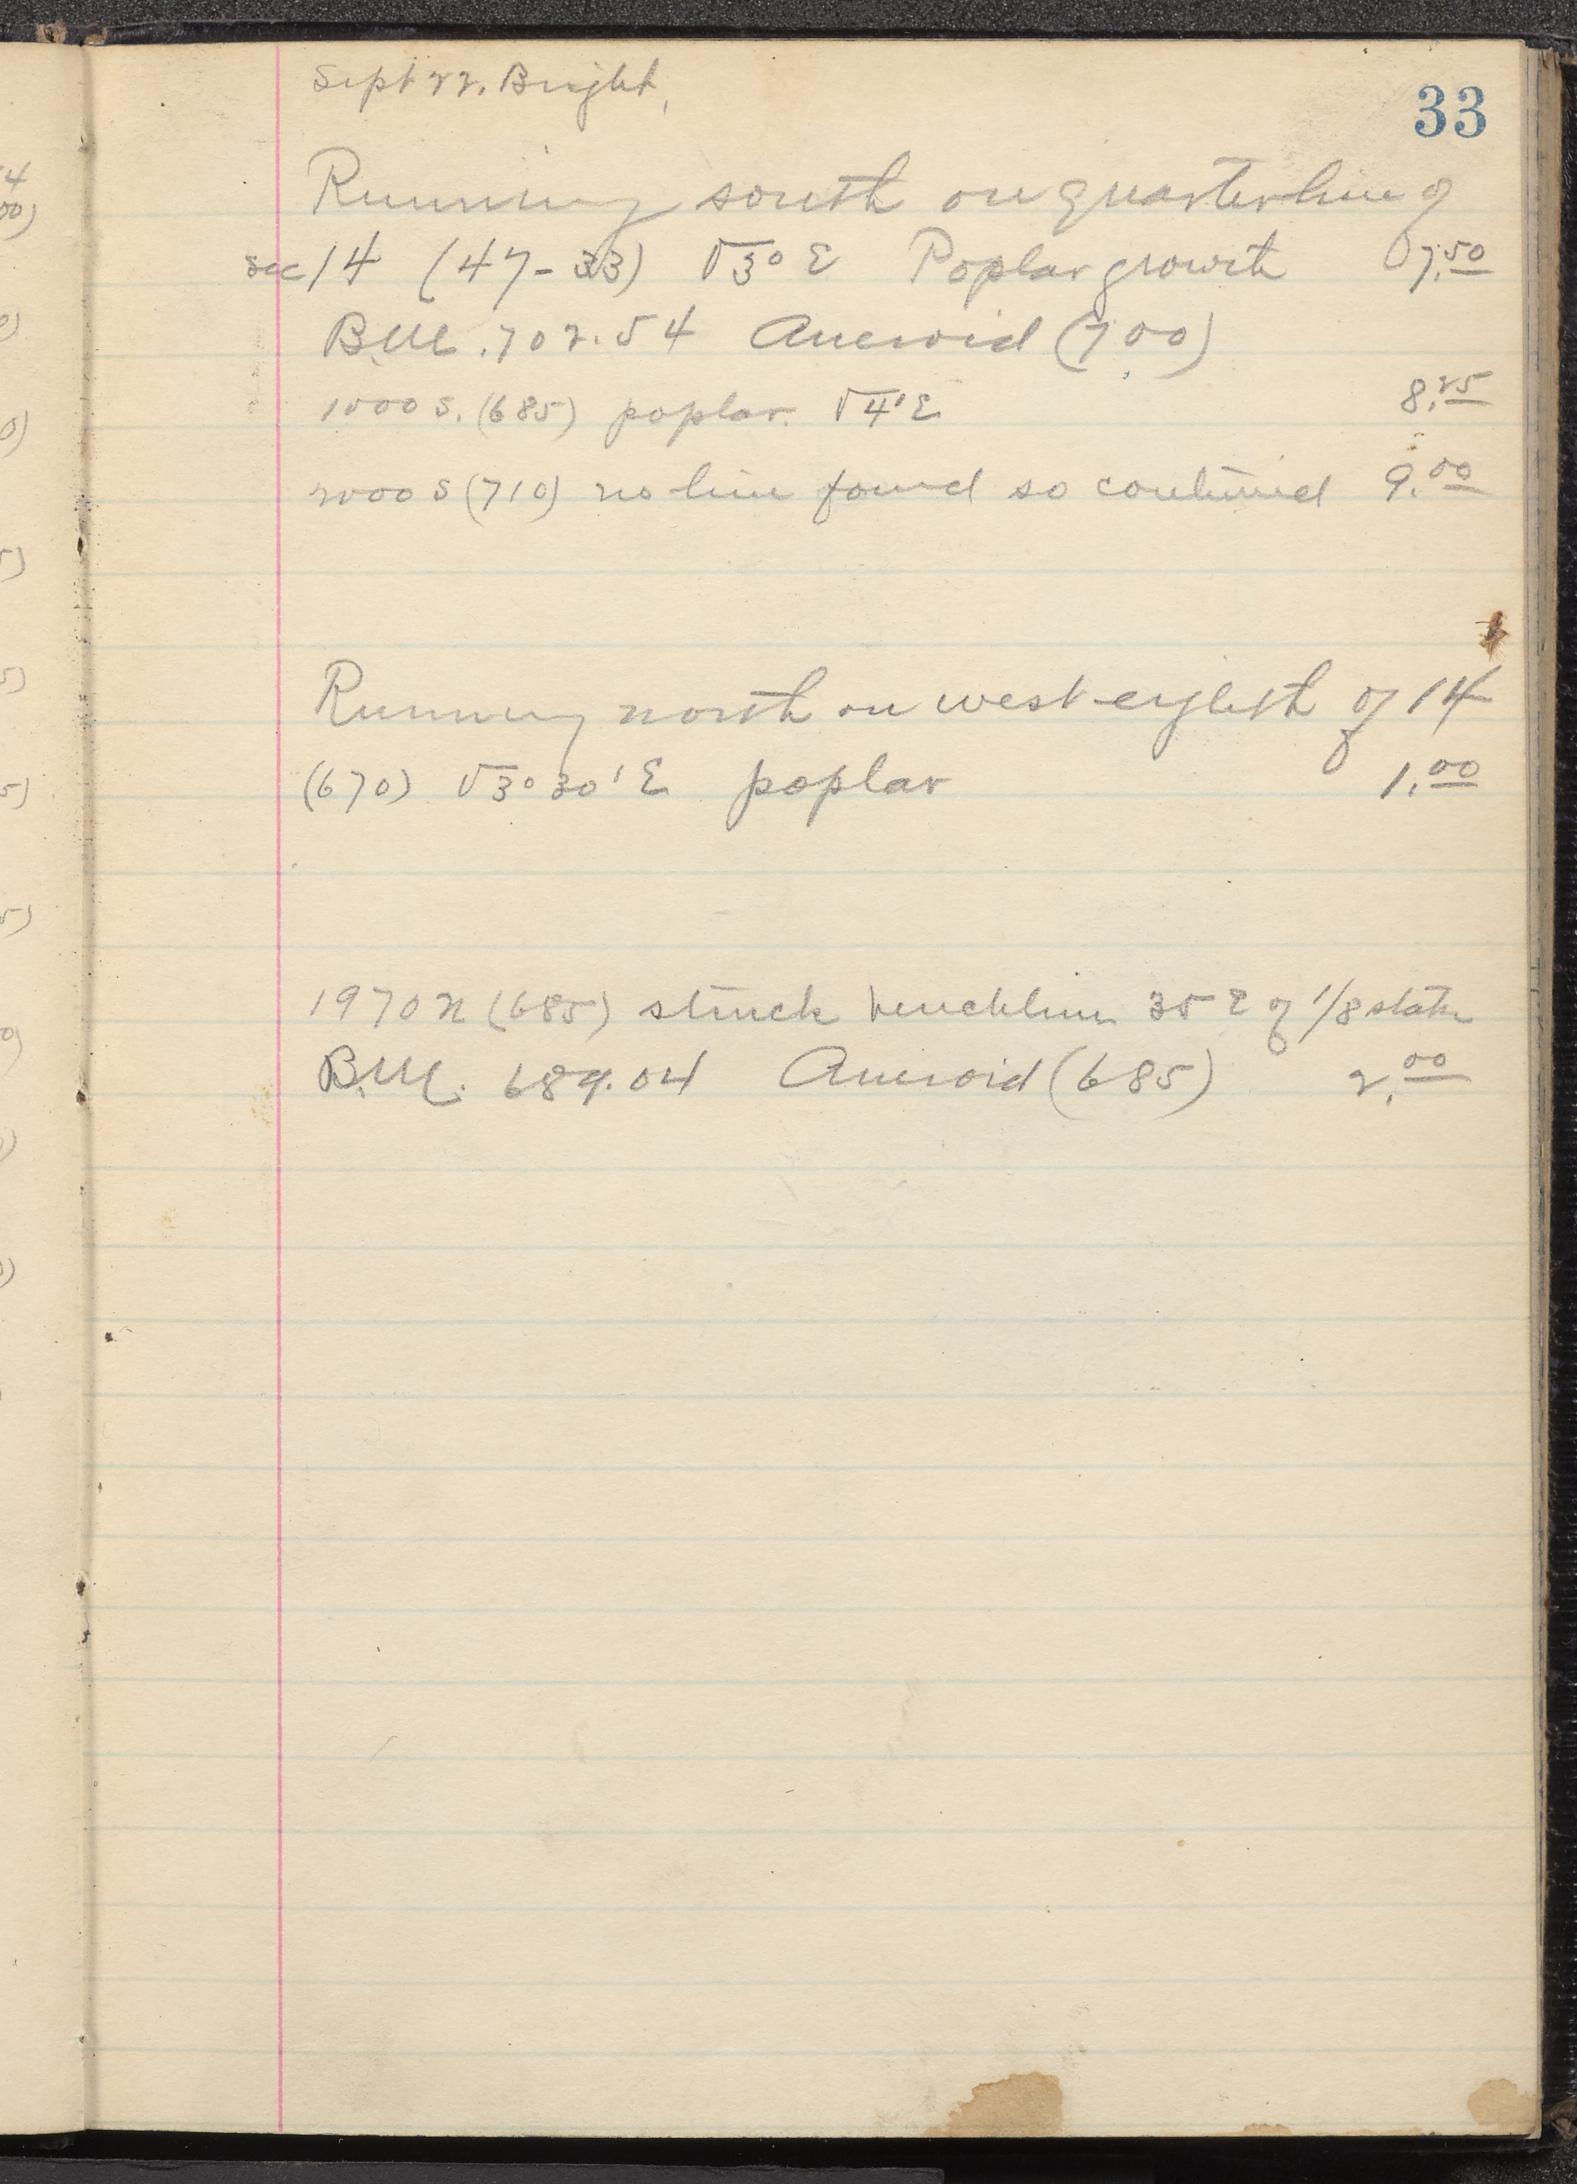 33
Sept 22. Bright,
Running south on quarterline of
sec 14 (47-33) V3° E Poplar growth 7.50
B.M. 702.54 Aneroid (700)
1000 S. (685) poplar. V4' E 8.25
2000 S (710) no line found so continued 9.00
Running north on west eighth of 14
(670) V3° 30' E poplar 1.00
1970 N (685) struck benchline 35 E of 1/8 stake
B.M. 689.04 Aneroid (685) 2.00